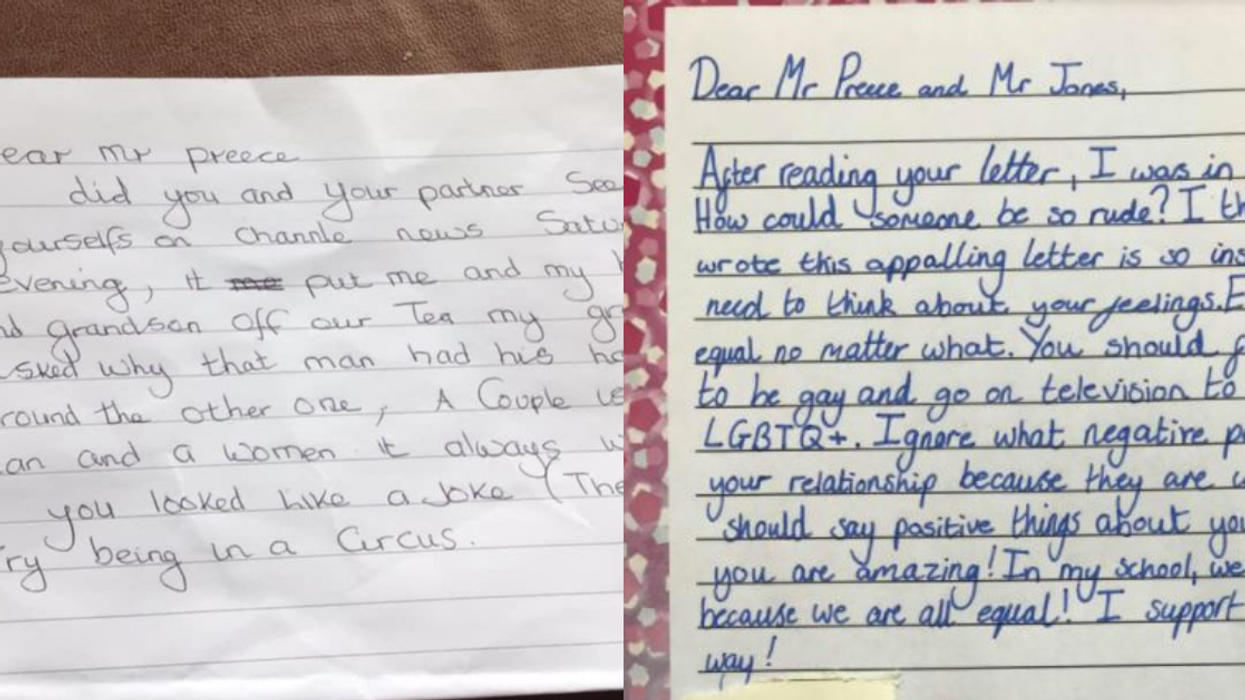 ear Mr preece
did you and your partner See
ourselfs on Channle news Satu
evening, it me put me and my
nd grandson off our Tea my gr
sked why that man had his ha
round the other one, A Couple
an and a women it always w
you looked Like a Joke (The
ry being in a Circus.
Dear Mr Preece and Mr Jones,
After reading your letter, I was in
How could someone be so rude? I th
wrote this appalling letter is so ins
need to think about your feelings. E
equal no matter what. You should
to be gay and go on television to
LGBTQ+. Ignore what negative p
your relationship because they are
should say positive things about you
you are amazing! In my school, we
because we are all equal! I support
way!